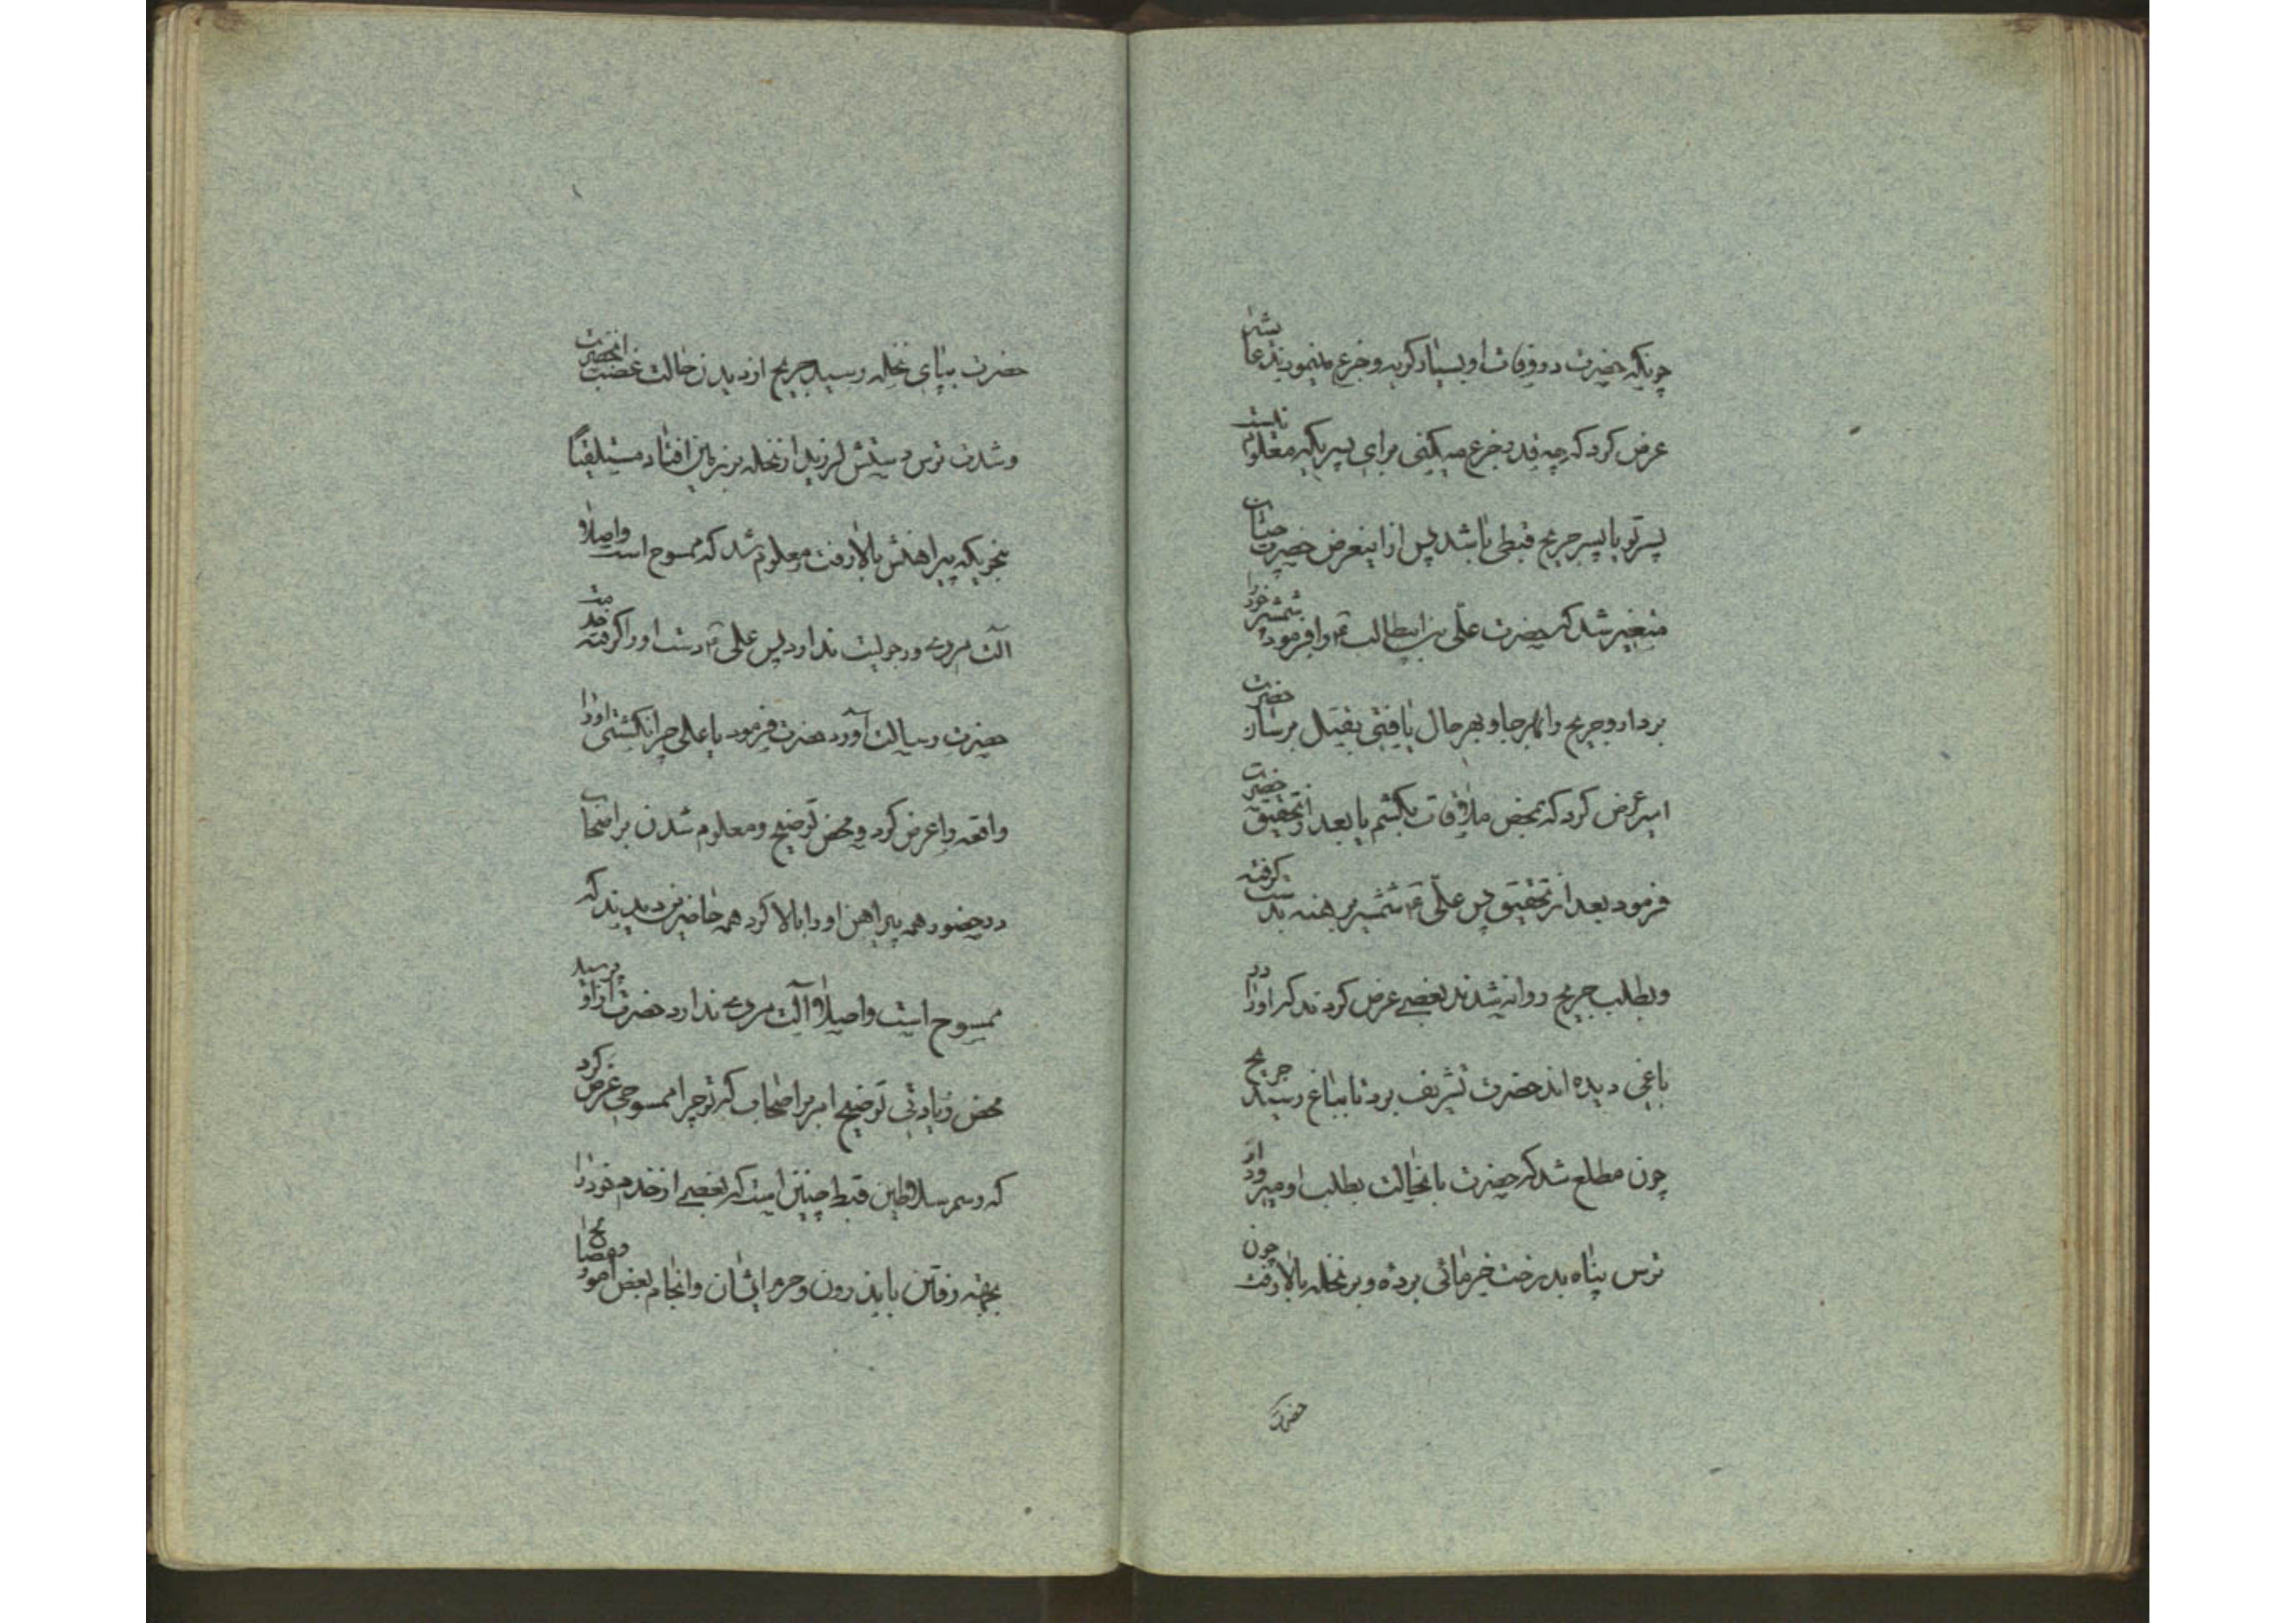 چونکه حضرت در وفات او بسیار گریه و جزع مینمودند عایشه
عرض کرد که چه قدر جزع میکنی برای پسریکه معلوم نیست
پسر تو یا پسر جریح قبطی باشد پس از اینعرض حضرت چنان
متغیر شد که حضرت علی بن ابیطالب ع را فرمود شمشیر خود را
بردار و جریح را بهر جا و بهر حال یافتی بقتل برسان حضرت
امیر عرض کرد که بمحض ملاقات بکشم یا بعد از تحقیق حضرت
فرمود بعد از تحقیق پس علی ع شمشیر برهنه بدست گرفته
و بطلب جریح روانه شدند بعضی عرض کردند که او را در
باغی دیده اند حضرت تشریف برد تا بباغ رسید جریح
چون مطلع شد که حضرت با نحالت بطلب او میرود از
ترس پناه بدرخت خرمائی برده و بر نخله بالا رفت چون
حضرت
حضرت بپای نخله رسید جریح از دیدن حالت غضب آنحضرت
و شدت ترس دستش لرزید از نخله بر زمین افتاد مستلقیًا
بنحویکه پیراهنش بالا رفت و معلوم شد که ممسوح است و اصلاً
آلت مردی و رجولیت ندارد پس علی ع دست او را گرفته خدمت
حضرت رسالت آورد حضرت فرمود یا علی چرا نکشتی او را
واقعه را عرض کرد و محض توضیح و معلوم شدن بر اصحاب
در حضور همه پیراهن او را بالا کرد همه حاضرین دیدند که
ممسوح است و اصلاً آلت مردی ندارد حضرت از او پرسید
محض زیادتی توضیح امر بر اصحاب که تو چرا ممسوحی عرض کرد
که رسم سلاطین قبط چنین است که بعضی از خدم خود را
بجهته رفتن باندرون و حرم ایشان و انجام بعض امور و مصالح